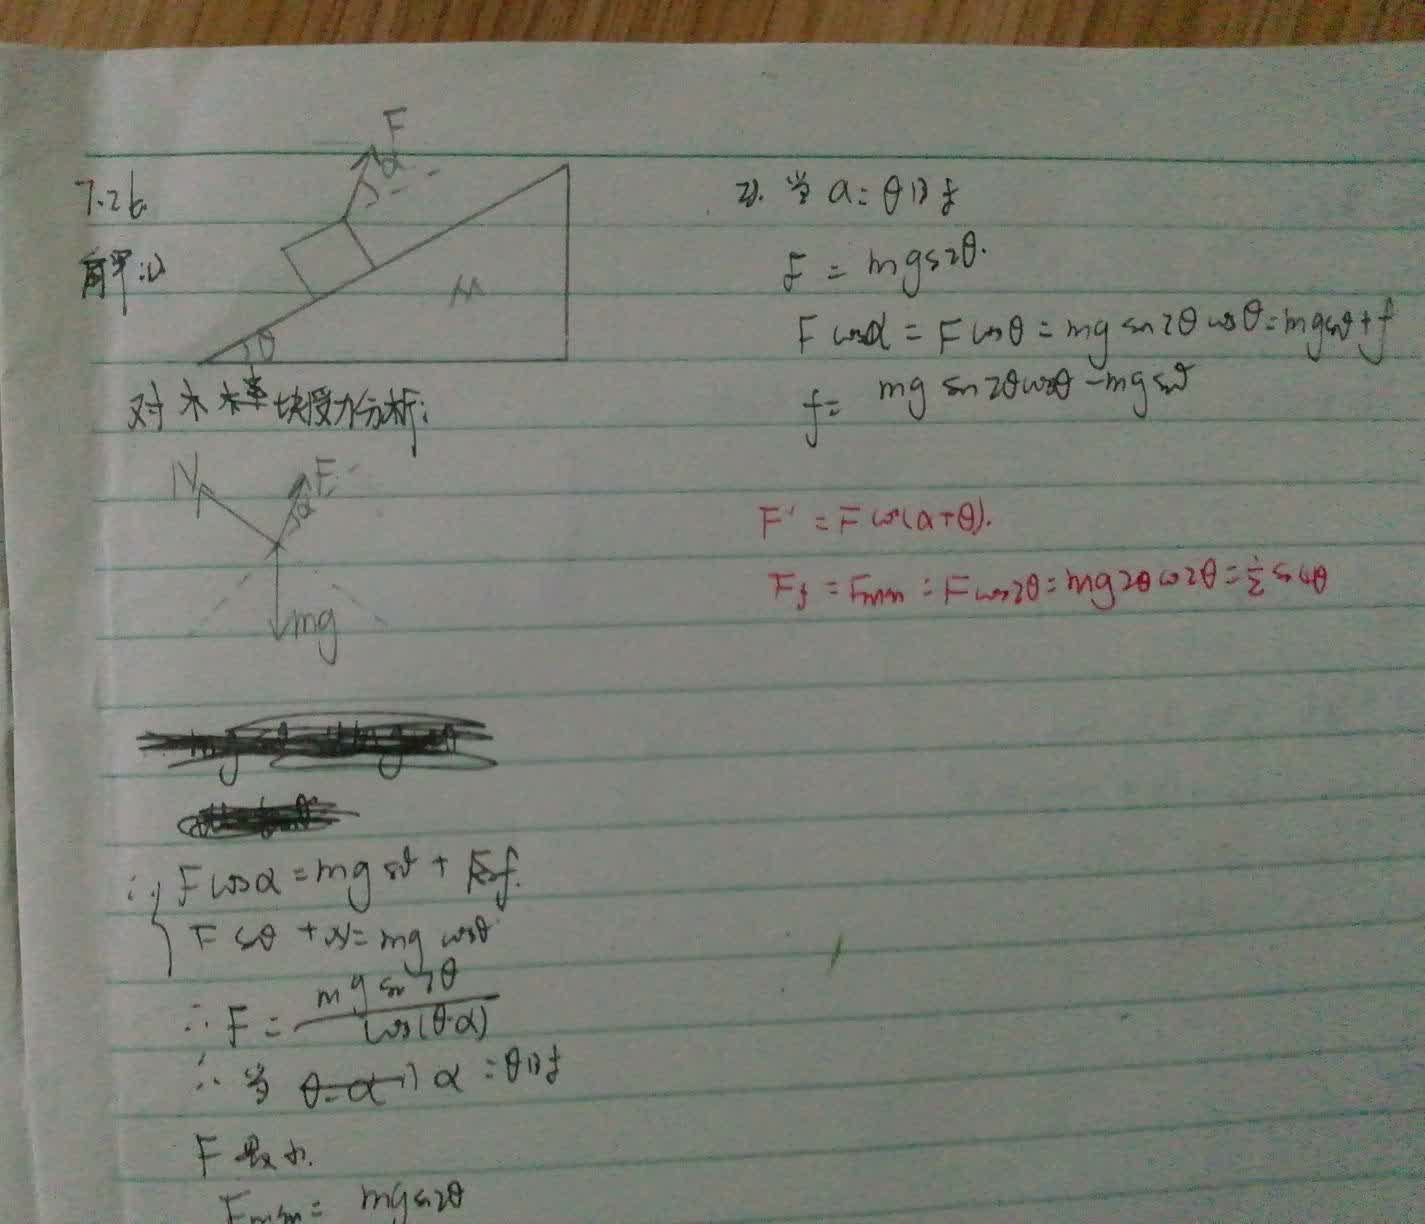 F
α
7.26
解:(1)
θ
M
对木块受力分析:
N
F
α
mg
∴ Fcosα=mgsinθ+f.
Fsinθ+N=mgcosθ
∴ F=mgsin2θ/cos(θ-α)
∴ 当 α=θ时
F最小.
Fmin= mgsin2θ
2). 当 α=θ时
F = mgsin2θ.
Fcosα = Fcosθ = mgsin2θcosθ=mgsinθ+f
f= mgsin2θcosθ-mgsinθ
F' = Fcos(α+θ).
Ff = Fmm = Fcos2θ=mg2θcos2θ=½sin4θ